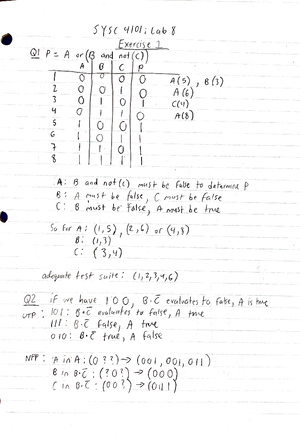 SYSC 4101: Lab 8
Exercise 1
Q1 P = A or (B and not(C))
A B C P
1 0 0 0 0 A(5), B(3)
2 0 0 1 0 A(6)
3 0 1 0 1 C(4)
4 0 1 1 0 A(8)
5 1 0 0 1
6 1 0 1 1
7 1 1 0 1
8 1 1 1 1
A: B and not(C) must be false to determine P
B: A must be false, C must be false
C: B must be False, A must be true
So for A: (1,5), (2,6) or (4,8)
B: (1,3)
C: (3,4)
adequate test suite: (1,2,3,4,6)
Q2 if we have 100, B·C̅ evaluates to false, A is true
UTP: 101: B·C̅ evaluates to false, A true
111: B·C̅ false, A true
010: B·C̅ true, A false
NFP: A in A: (0??) → (001, 001, 011)
B in B·C̅: (?0?) → (000)
C in B·C̅: (00?) → (011)